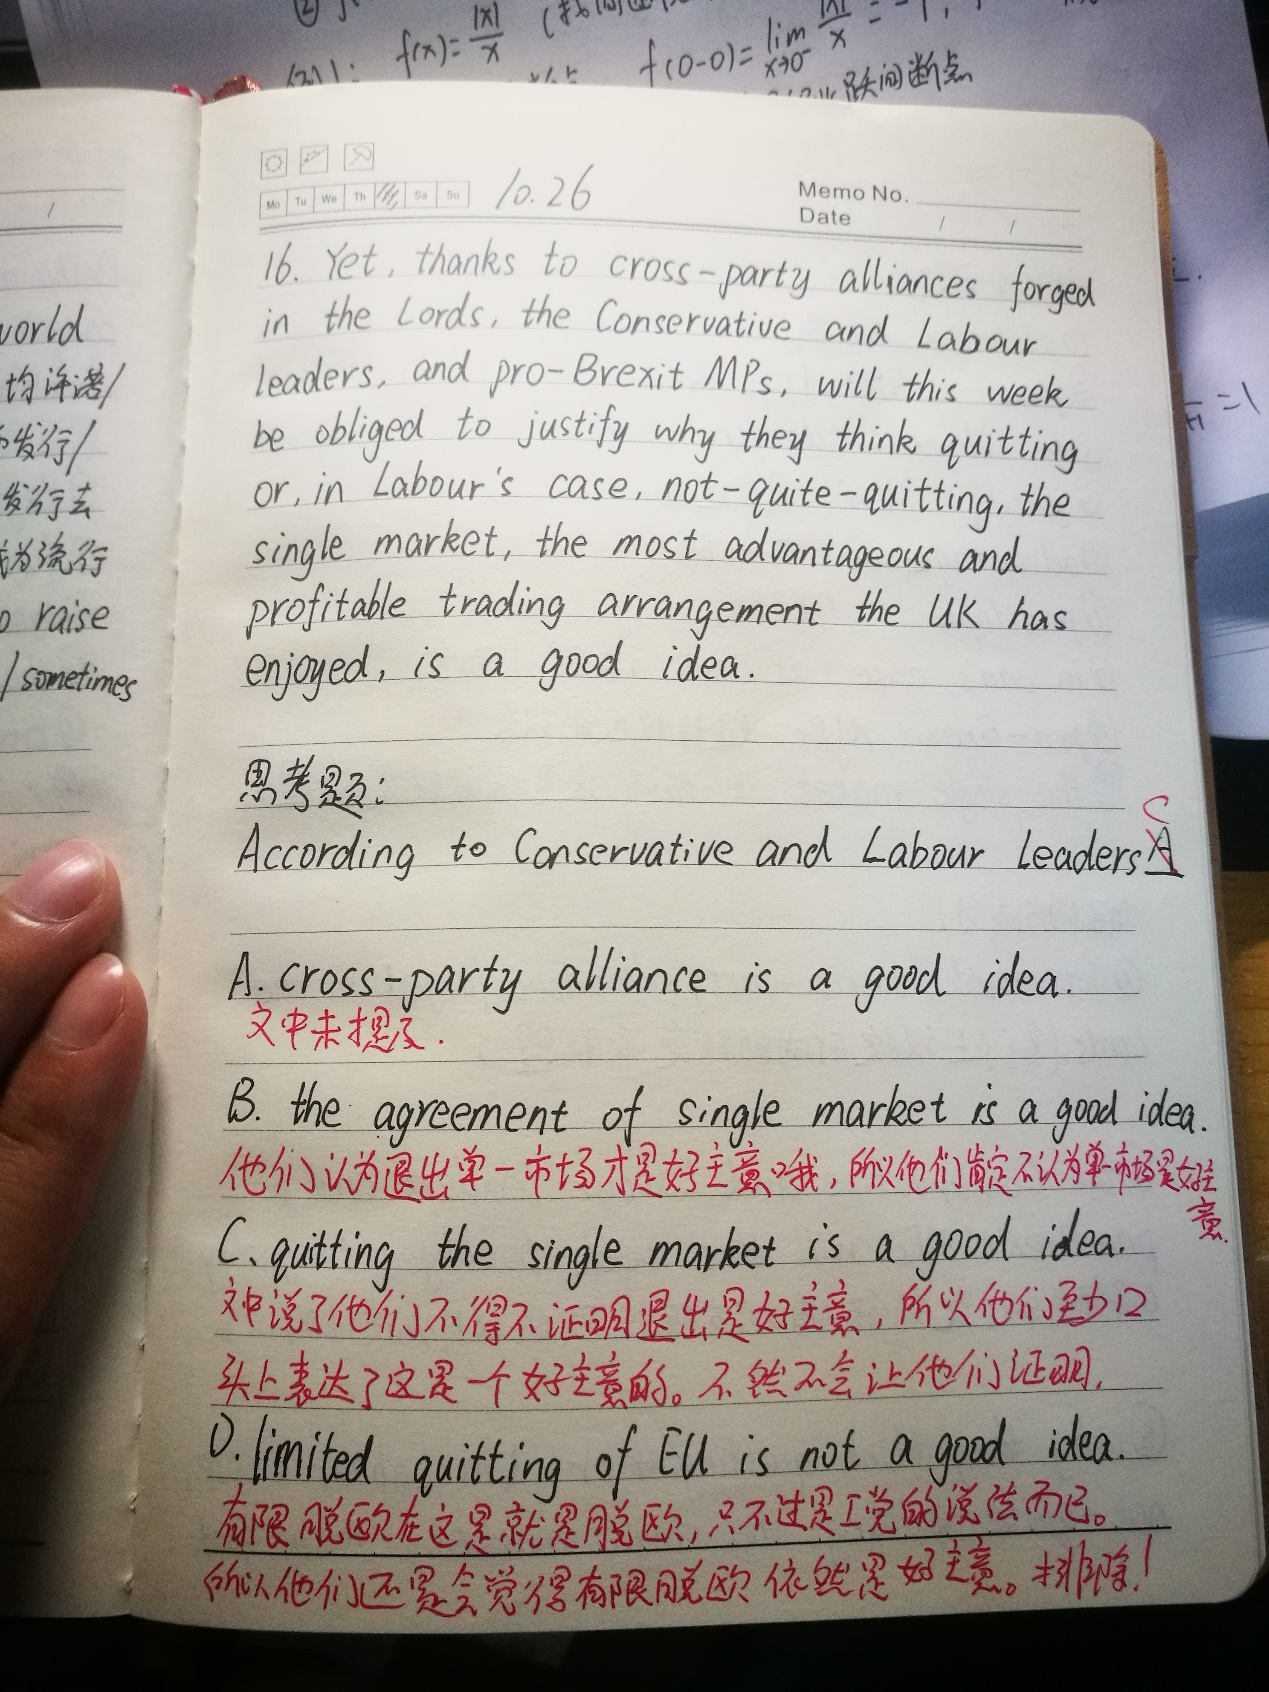 f(x)= |x|/x
f(0-0)= lim x→0⁻ |x|/x = -1,
跃间断点
=1
world
均许诺/
发行/
发行去
成为流行
raise
/sometimes
/
Mo Tu We Th Sa Su
10.26
Memo No.
Date / /
16. Yet, thanks to cross-party alliances forged
in the Lords, the Conservative and Labour
leaders, and pro-Brexit MPs, will this week
be obliged to justify why they think quitting
or, in Labour's case, not-quite-quitting, the
single market, the most advantageous and
profitable trading arrangement the UK has
enjoyed, is a good idea.
思考题:
C
According to Conservative and Labour Leaders A
A. cross-party alliance is a good idea.
文中未提及.
B. the agreement of single market is a good idea.
他们认为退出单一市场才是好主意哦, 所以他们肯定不认为单一市场是好主
意.
C. quitting the single market is a good idea.
文中说了他们不得不证明退出是好主意, 所以他们至少口
头上表达了这是一个好主意的。不然不会让他们证明.
D. limited quitting of EU is not a good idea.
有限脱欧在这里就是脱欧, 只不过是工党的说法而已。
所以他们还是会觉得有限脱欧依然是好主意。排除!